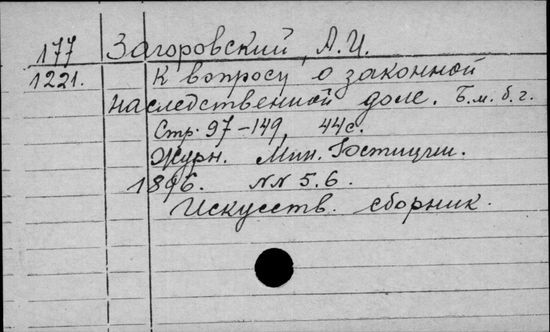 177 Загоровский, А.И.
1221. К вопросу о законной
наследственной доле. Б.м.б.г.
Стр. 97-149, 44с.
Журн. Мин. Юстиции.
1896. NN 5.6.
Искусств. сборник.